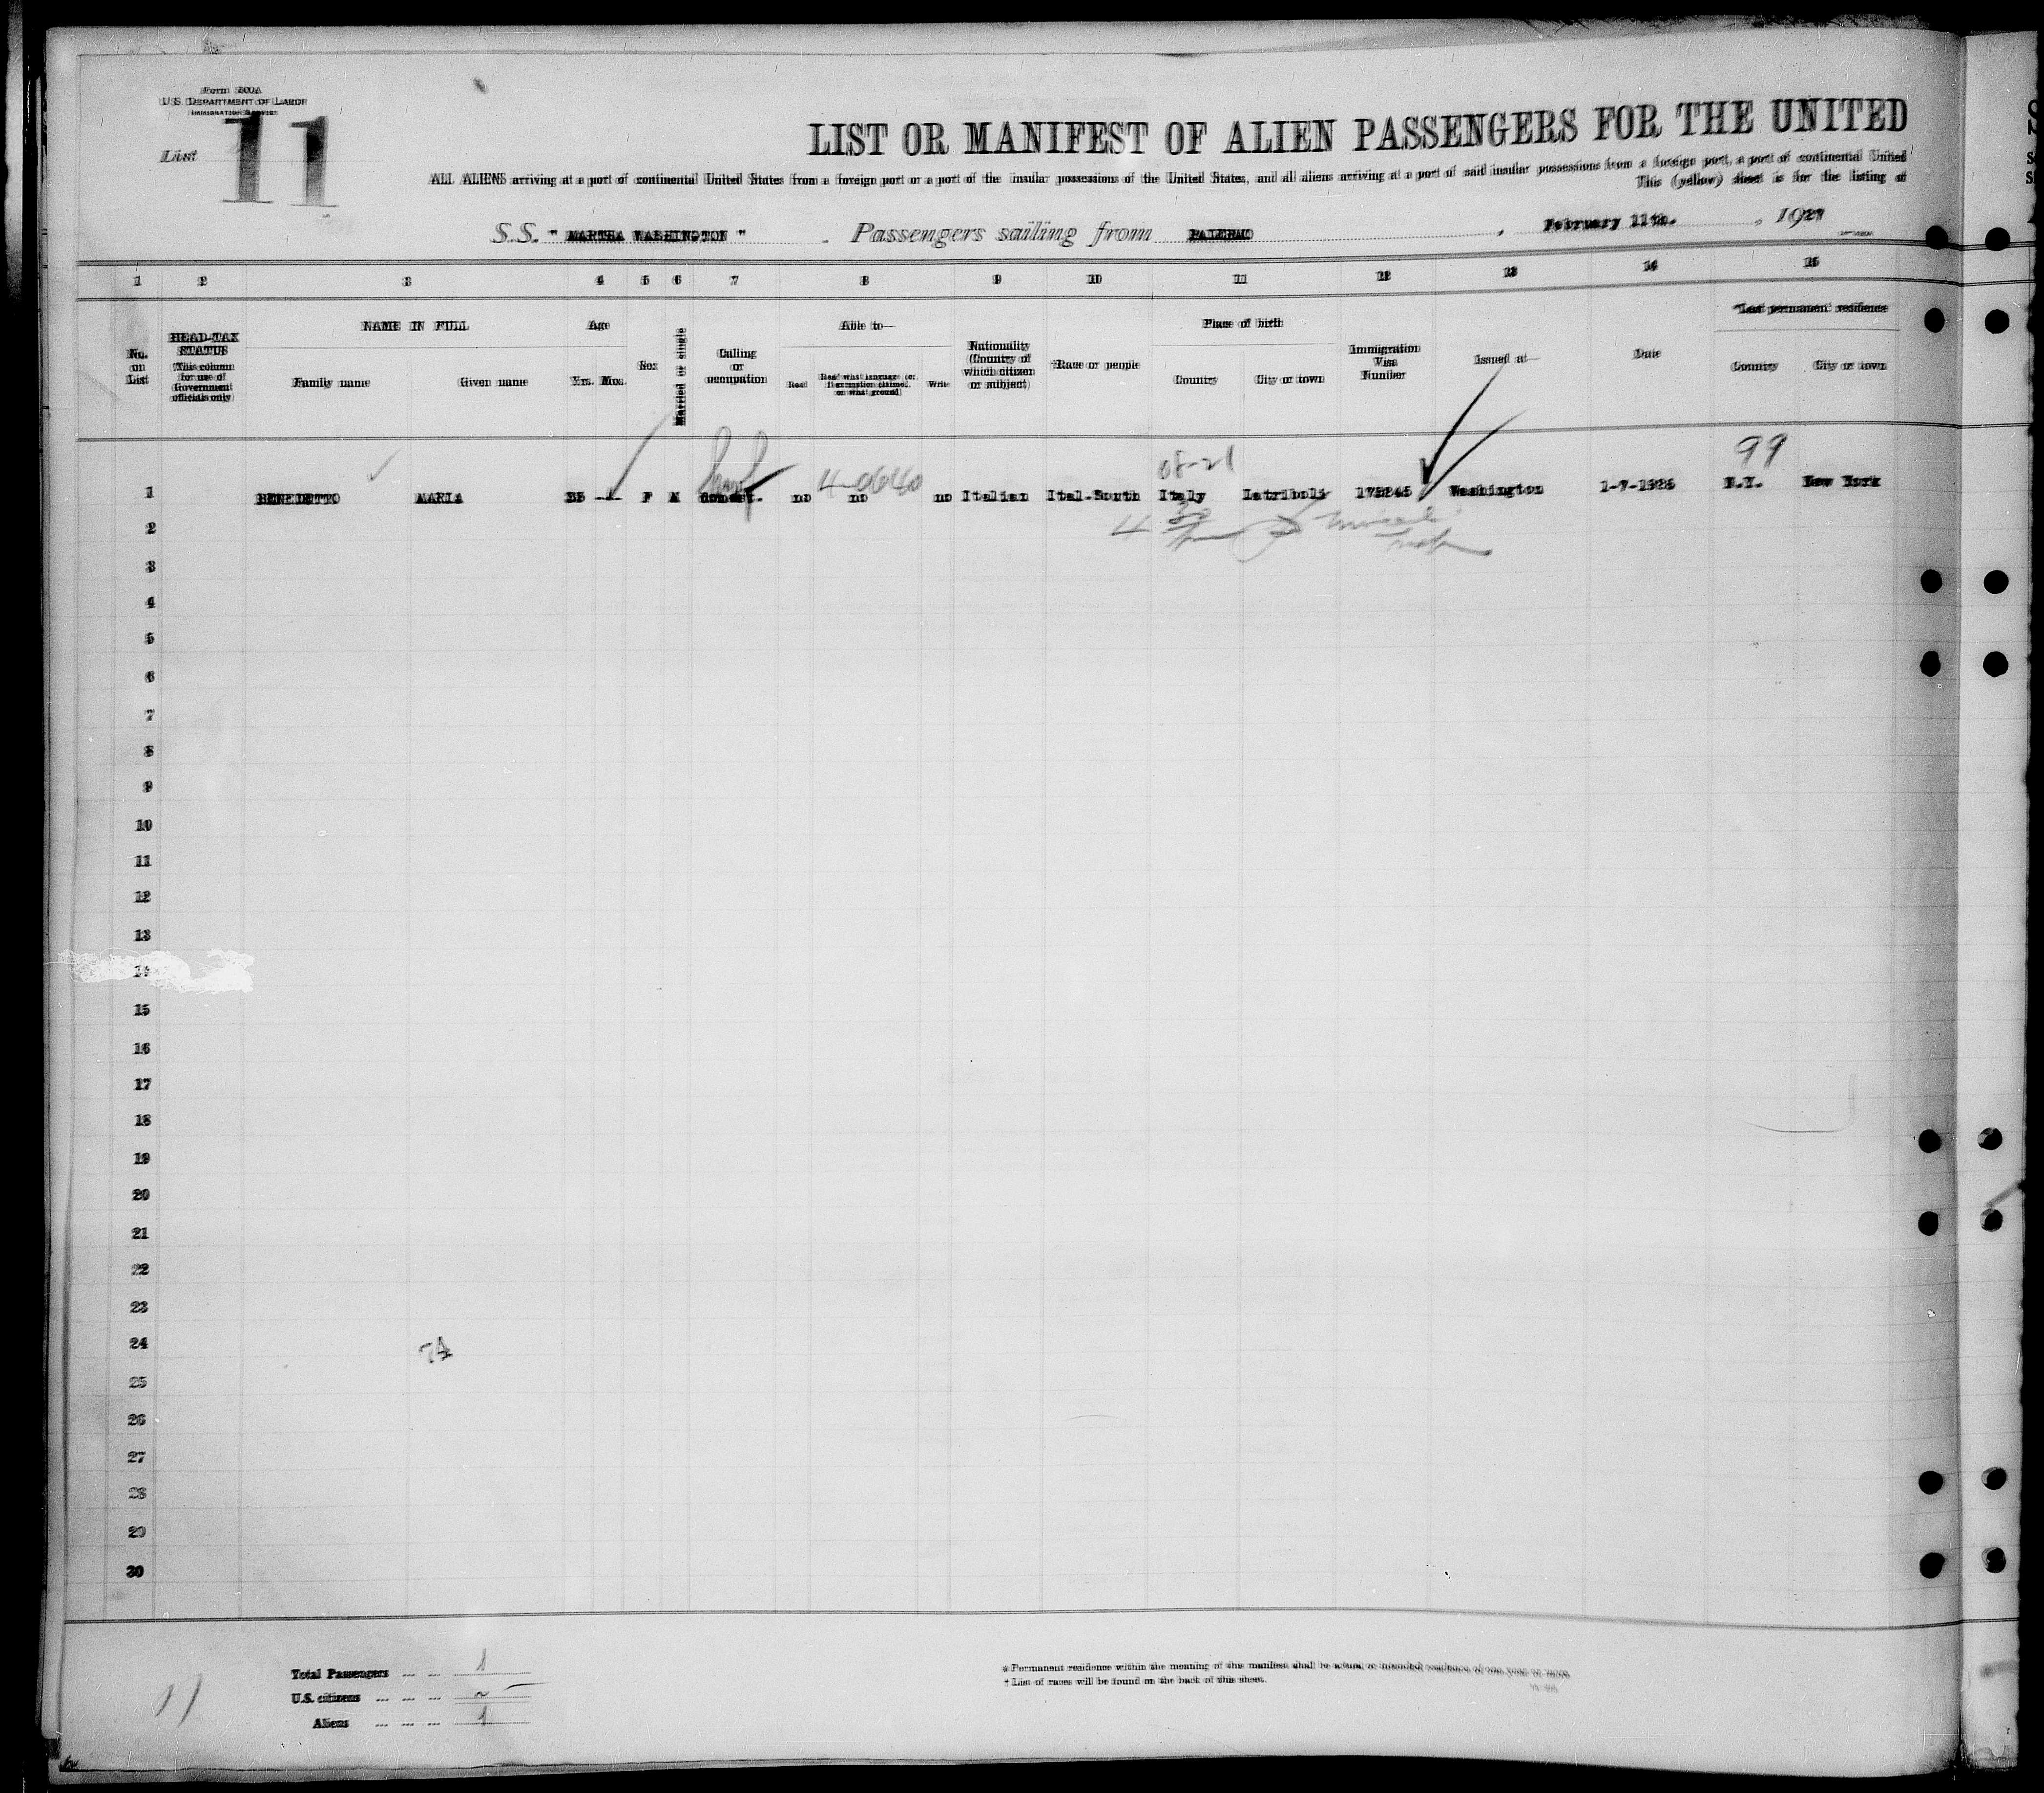 Form 500A
U.S. DEPARTMENT OF LABOR
IMMIGRATION SERVICE
List 11
LIST OR MANIFEST OF ALIEN PASSENGERS FOR THE UNITED
ALL ALIENS arriving at a port of continental United States from a foreign port or a port of the insular possessions of the United States, and all aliens arriving at a port of said insular possessions from a foreign port, a port of continental United
This (yellow) sheet is for the listing of
S.S. " MARTHA WASHINGTON " Passengers sailing from PALERMO , February 11th. , 1927
1 2 3 4 5 6 7 8 9 10 11 12 13 14 15
No. on List
HEAD-TAX STATUS (This column for use of Government officials only)
NAME IN FULL
Family name Given name
Age
Yrs. Mos.
Sex
Married or single
Calling or occupation
Able to—
Read Read what language (or, if exemption claimed, on what ground) Write
Nationality (Country of which citizen or subject)
†Race or people
Place of birth
Country City or town
Immigration Visa Number
Issued at—
Date
*Last permanent residence
Country City or town
99
08-21
4-0640
1 BENEDETTO MARIA F M no no no Italian Ital.South Italy Washington N.Y. New York
2
3
4
5
6
7
8
9
10
11
12
13
14
15
16
17
18
19
20
21
22
23
24
74
25
26
27
28
29
30
Total Passengers ... ... 1
U.S. citizens ... ... ... -
Aliens ... ... ... 1
11
* Permanent residence within the meaning of this manifest shall be actual or intended residence of one year or more.
† List of races will be found on the back of this sheet.